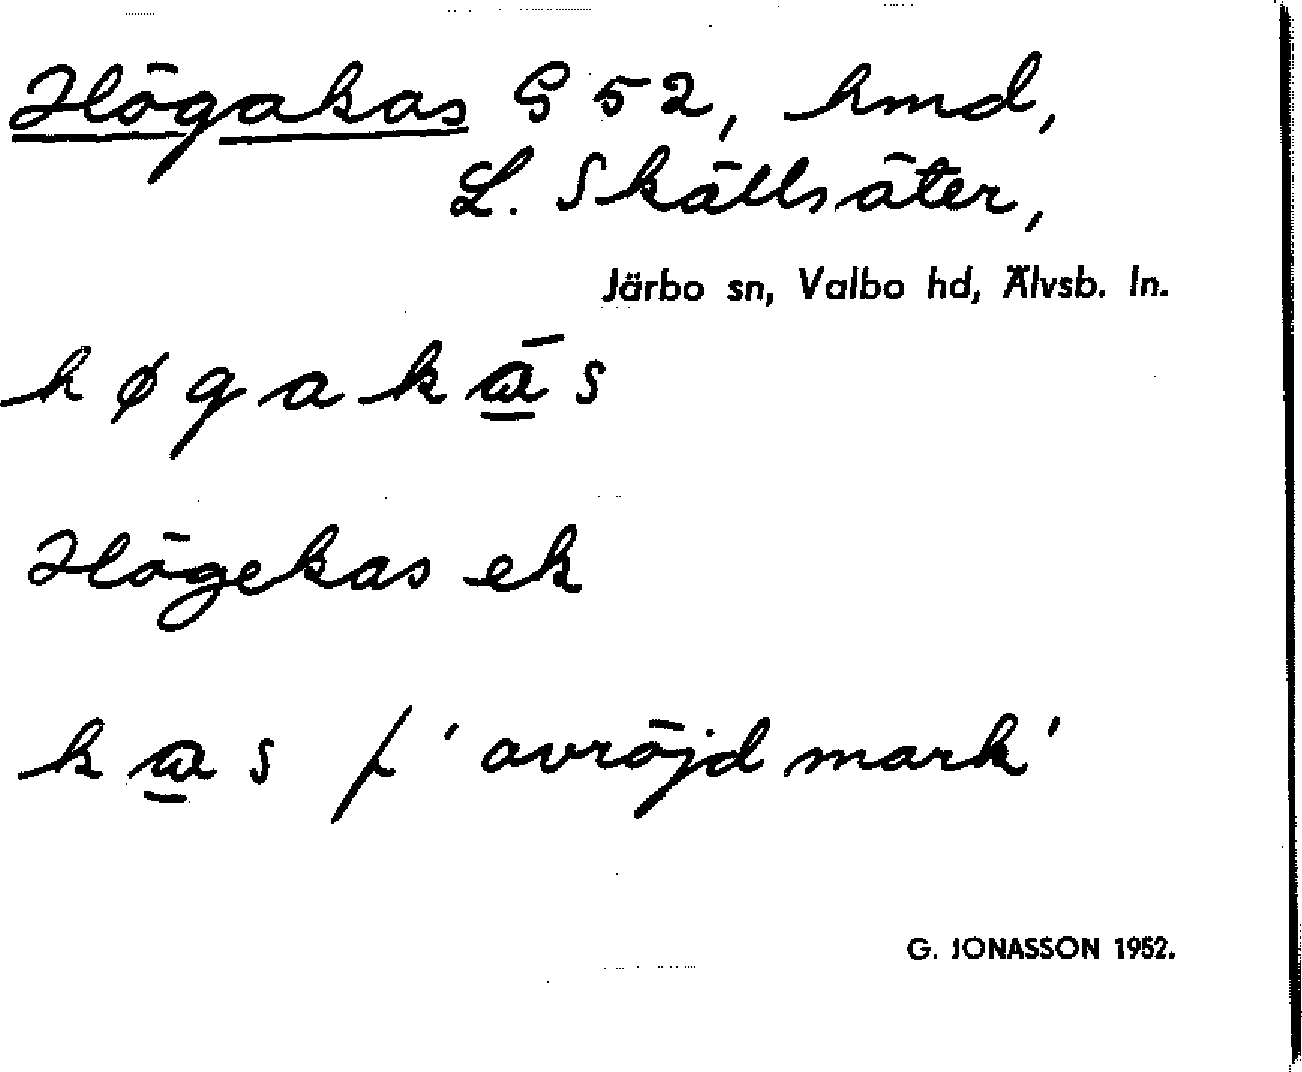 Högakas G 52, hmd,
L. Skällsäter,
Järbo sn, Valbo hd, Älvsb. ln.
høgakas
Högekas ek
kas f 'avröjd mark'
G. JONASSON 1952.